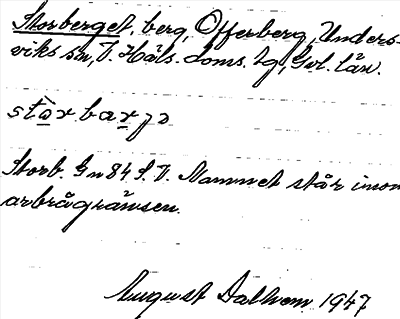 Storberget, berg, Offerberg, Unders-
viks sn, V. Häls. doms. tg, Gvl. län.
Storb. Gn 84 S.V. Namnet står inom
arbrågränsen.
August Dalhem 1947